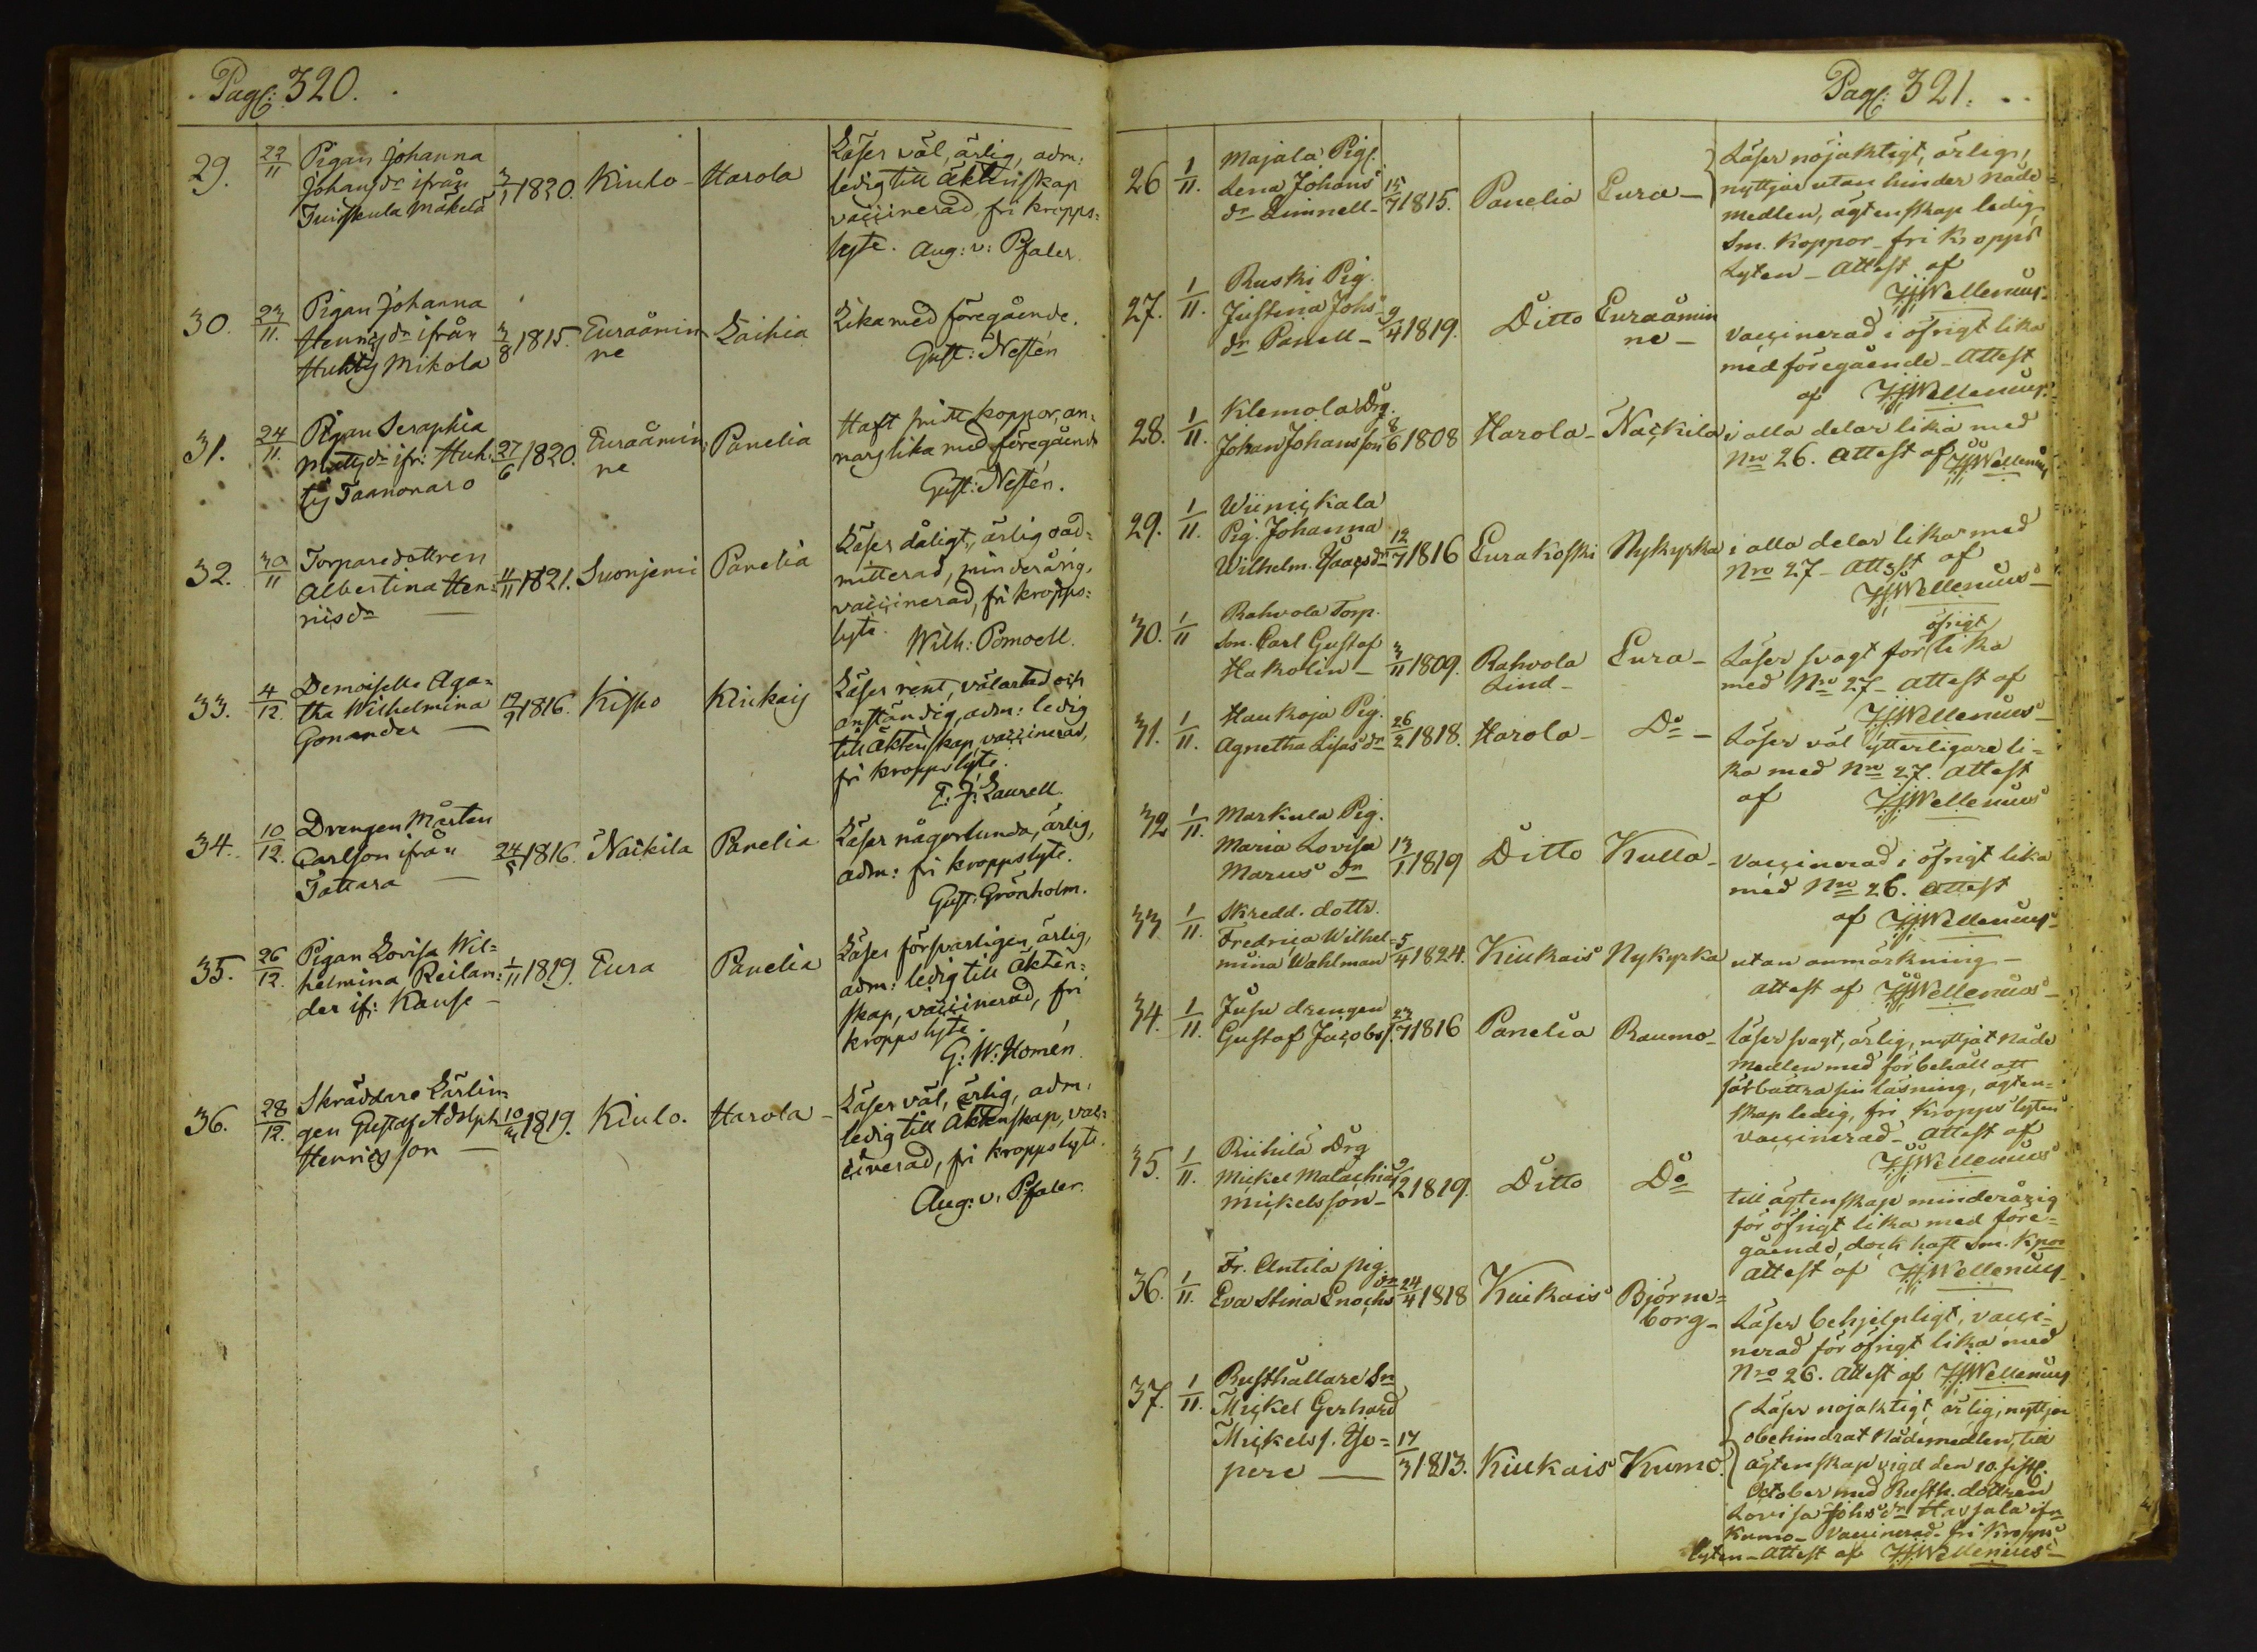 Pag: 320.
29. 22/11 Pigan Johanna
Johansdr ifrån
Tuiskula Mäkelä 3/1 1820. Kiulo- Harola
Läser väl, ärlig, adm:
ledig till Äktenskap
vaccinerad, fri kropps=
lyte. Aug: v: Pfaler.
30. 23/11. Pigan Johanna
Henricsdr ifrån
Huhtis Mikola 3/8 1815. Euraåmin
ne Laihia
Lika med föregående.
Gust: Neſtén
31. 24/11. Pigan Seraphia
Mattsdr ifr: Huh-
tis Taanonaro 27/6 1820. Euraåmin:
ne Panelia
Haft hritt koppor, an:
nars lika med föregående
Gust: Neſtén.
32. 30/11 Torparedottren
Albertina Hen:
riisdr 4/11 1821. Suonjemi Panelia
Läser dåligt, ärlig oad=
mitterad, minderårig,
vaccinerad, fri kropps:
lyte. Wilh: Pomoell.
33. 4/12. Demoiselle Aga=
tha Wilhelmina
Gonander 19/9 1816. Kisko Kiukais
Läser rent, välartad och
anständig, adm: ledig
till Äktenskap, vaccinerad,
fri kroppslyte.
E: J: Laurell.
34. 10/12. Drengen Mårten
Carlson ifrån
Tattara 24/5 1816. Nackila Panelia
Läser någorlunda, ärlig,
adm: fri kroppslyte.
Gust: Grönholm.
35. 26/12. Pigan Lovisa Wil=
helmina Reilan:
der if: Kause 1/11 1819. Eura Panelia
Läser försvarligen, ärlig,
adm: ledig till Äkten:
skap, vaccinerad, fri
kroppslyte.
G: W: Homén.
36. 28/12. Skräddare Lärlin
gen Gustaf Adolph
Henricsson 10/3 1819. Kiulo. Harola-
Läser väl, ärlig, adm:
ledig till Äktenskap, vac:
cinerad, fri kroppslyte.
Aug: v: Pfaler.
Pag: 321.
26 1/11. Majala Pig.
Lena Johans
dr Limnell- 15/7 1815. Panelia Eura-
Läser nöjaktigt, ärlig,
nyttjar utan hinder Nåde=
medlen, ägtenskap ledig
Sm. Koppor- fri Kropps
Lyten- Attest af
JJWellenius-
27. 1/11. Ruski Pig.
Justina Johs
dr Panell- 9/4 1819. Ditto Euraåmin
ne-
vaccinerad i öfrigt lika
med föregående- Attest
af JJWellenius.
28. 1/11. Klemola Drg.
Johan Johansson 8/6 1808 Harola- Nackila
i alla delar lika med
Nro 26. Attest af JJWellenius
29. 1/11 Wiinickala
Pig. Johanna
Wilhelm. Isaacsdr 12/7 1816 Eurakoski Nykyrka
i alla delar lika med
Nro 27- Attest af
JJWellenius-
30. 1/11 Rahvola Torp.
Son. Carl Gustaf
Hakolin- 3/11 1809. Rahvola
Lind- Eura-
öfrigt
Läser svagt för lika
med Nro 27- Attest af
JJWellenius-
31. 1/11. Haukoja Pig.
Agnetha Lisasdr 26/2 1818. Harola- Do-
Läser väl ytterligare li=
ka med Nro 27. Attest
af JJWellenius
32 1/11. Markula Pig.
Maria Lovisa
Marusdr 13/1 1819 Ditto Kulla-
vaccinerad i öfrigt lika
med Nro 26. Attest
af JJWellenius-
33 1/11. Skredd. dottr.
Fredrica Wilhel=
mina Wahlman 5/4 1824. Kiukais Nykyrka
utan anmärkning-
attest af JJWellenius-
34. 1/11. Jusu drengen
Gustaf Jacobss. 23/7 1816 Panelia Raumo-
Läser svagt, ärlig, nyttjat Nåde
Medlen med förbehåll att
förbättra sin läsning, ägten=
skap ledig, fri Kropps lyten
vaccinerad- Attest af
JJWellenius
35. 1/11. Riihilä Drg
Mickel Malachias
Mickelsson- 9/2 1819. Ditto Do
till ägtenskap minderårig
för öfrigt lika med före=
gående, dock haft sm. Kpor
Attest af JJWellenius-
36. 1/11. Fr. Antila pig.
Eva Stina Enochsdr 24/4 1818 Kiukais Björne=
borg-
Läser behjelpligt, vacci=
nerad för öfrigt lika med
Nro 26. Attest af JJWellenius
37. 1/11. Rusthållare Sn
Mickel Gerhard
Mickelss. Yso=
pere 17/3 1813. Kiukais Kumo.
Läser nöjaktigt, ärlig, nyttjar
obehindrat Nådemedlen, till
ägtenskap vigd den 10. sistl.
October med Rusth. dottren
Lovisa Johsdr Havsala ifrn
Kumo- Vaccinerad- fri Kropps
lyten- Attest af JJWellenius-